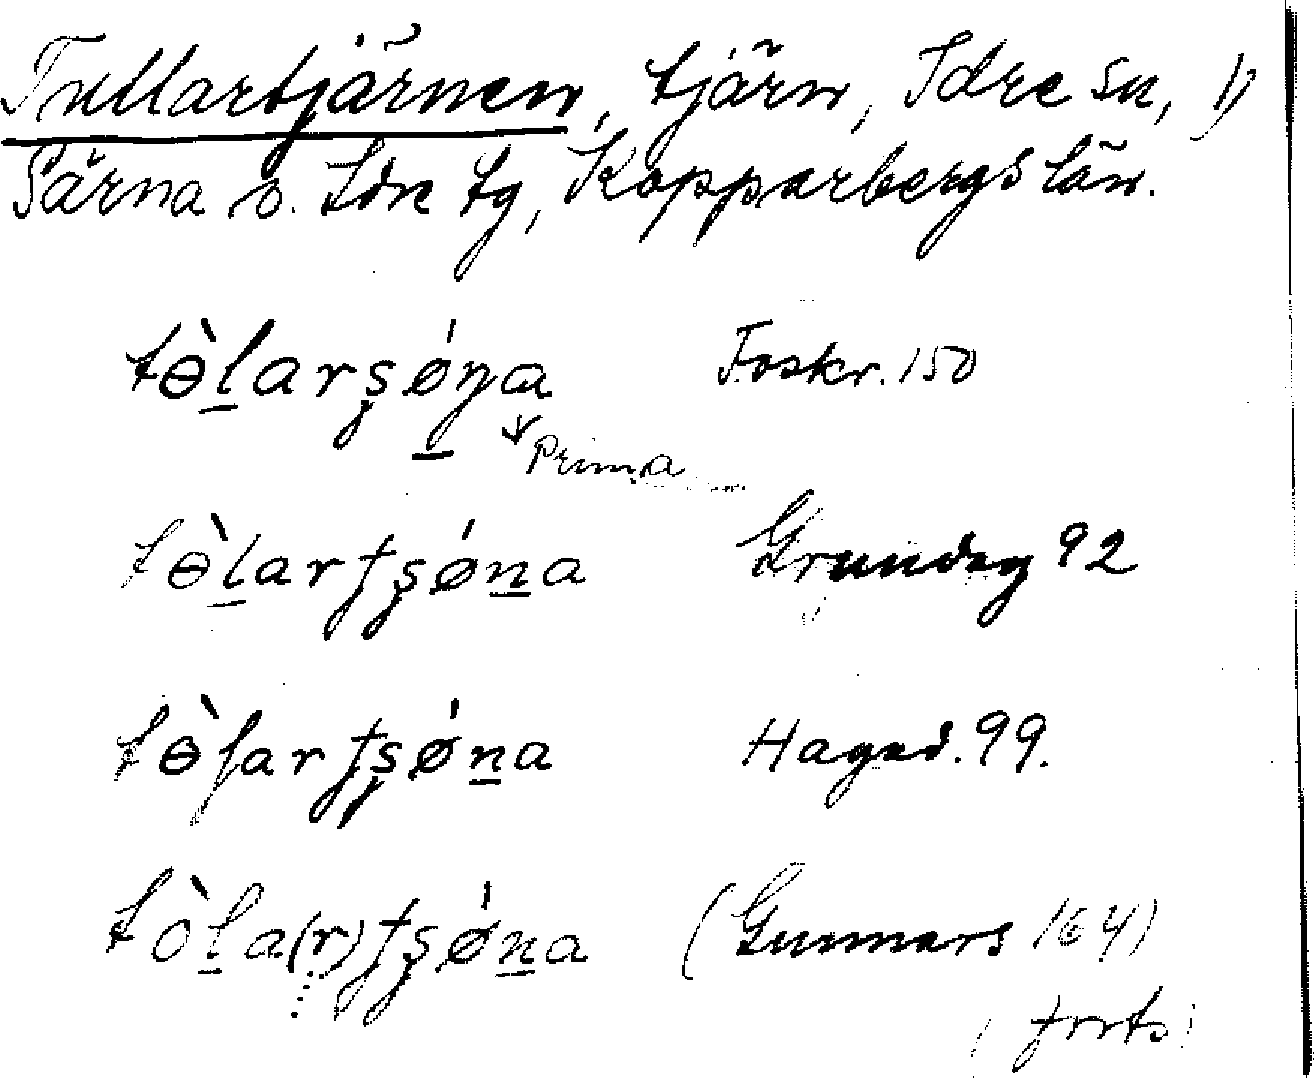 Tullartjärnen, tjärn, Idre sn, 1)
Särna o. Idre tg, Kopparbergs län.
tɵ̀l̲arʂǿṉa Foskr. 150
Prima
tɵ̀l̲arʈʂǿṉa Grundag 92
tɵ̀ſarʈʂǿṉa Hagad. 99.
tòl̲a(r)ʈʂǿṉa (Gunnars 164)
(forts)